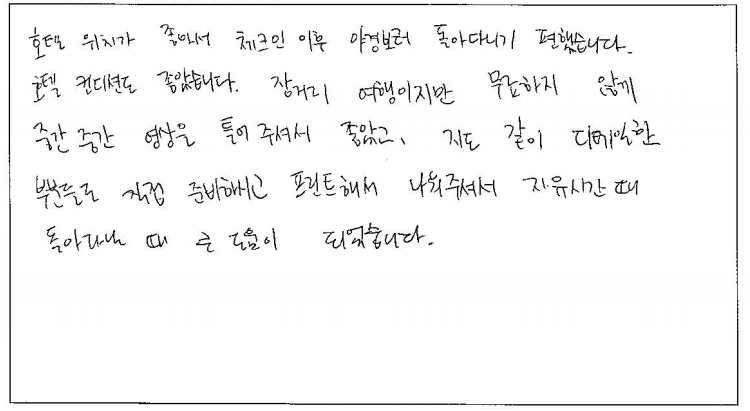 호텔 위치가 좋아서 체크인 이후 야경보러 돌아다니기 편했습니다.
호텔 컨디션도 좋았습니다. 장거리 여행이지만 무료하지 않게
중간 중간 영상을 틀어주셔서 좋았고, 지도 같이 디테일한
부분들도 직접 준비하시고 프린트해서 나눠주셔서 자유시간 때
돌아다닐 때 큰 도움이 되었습니다.